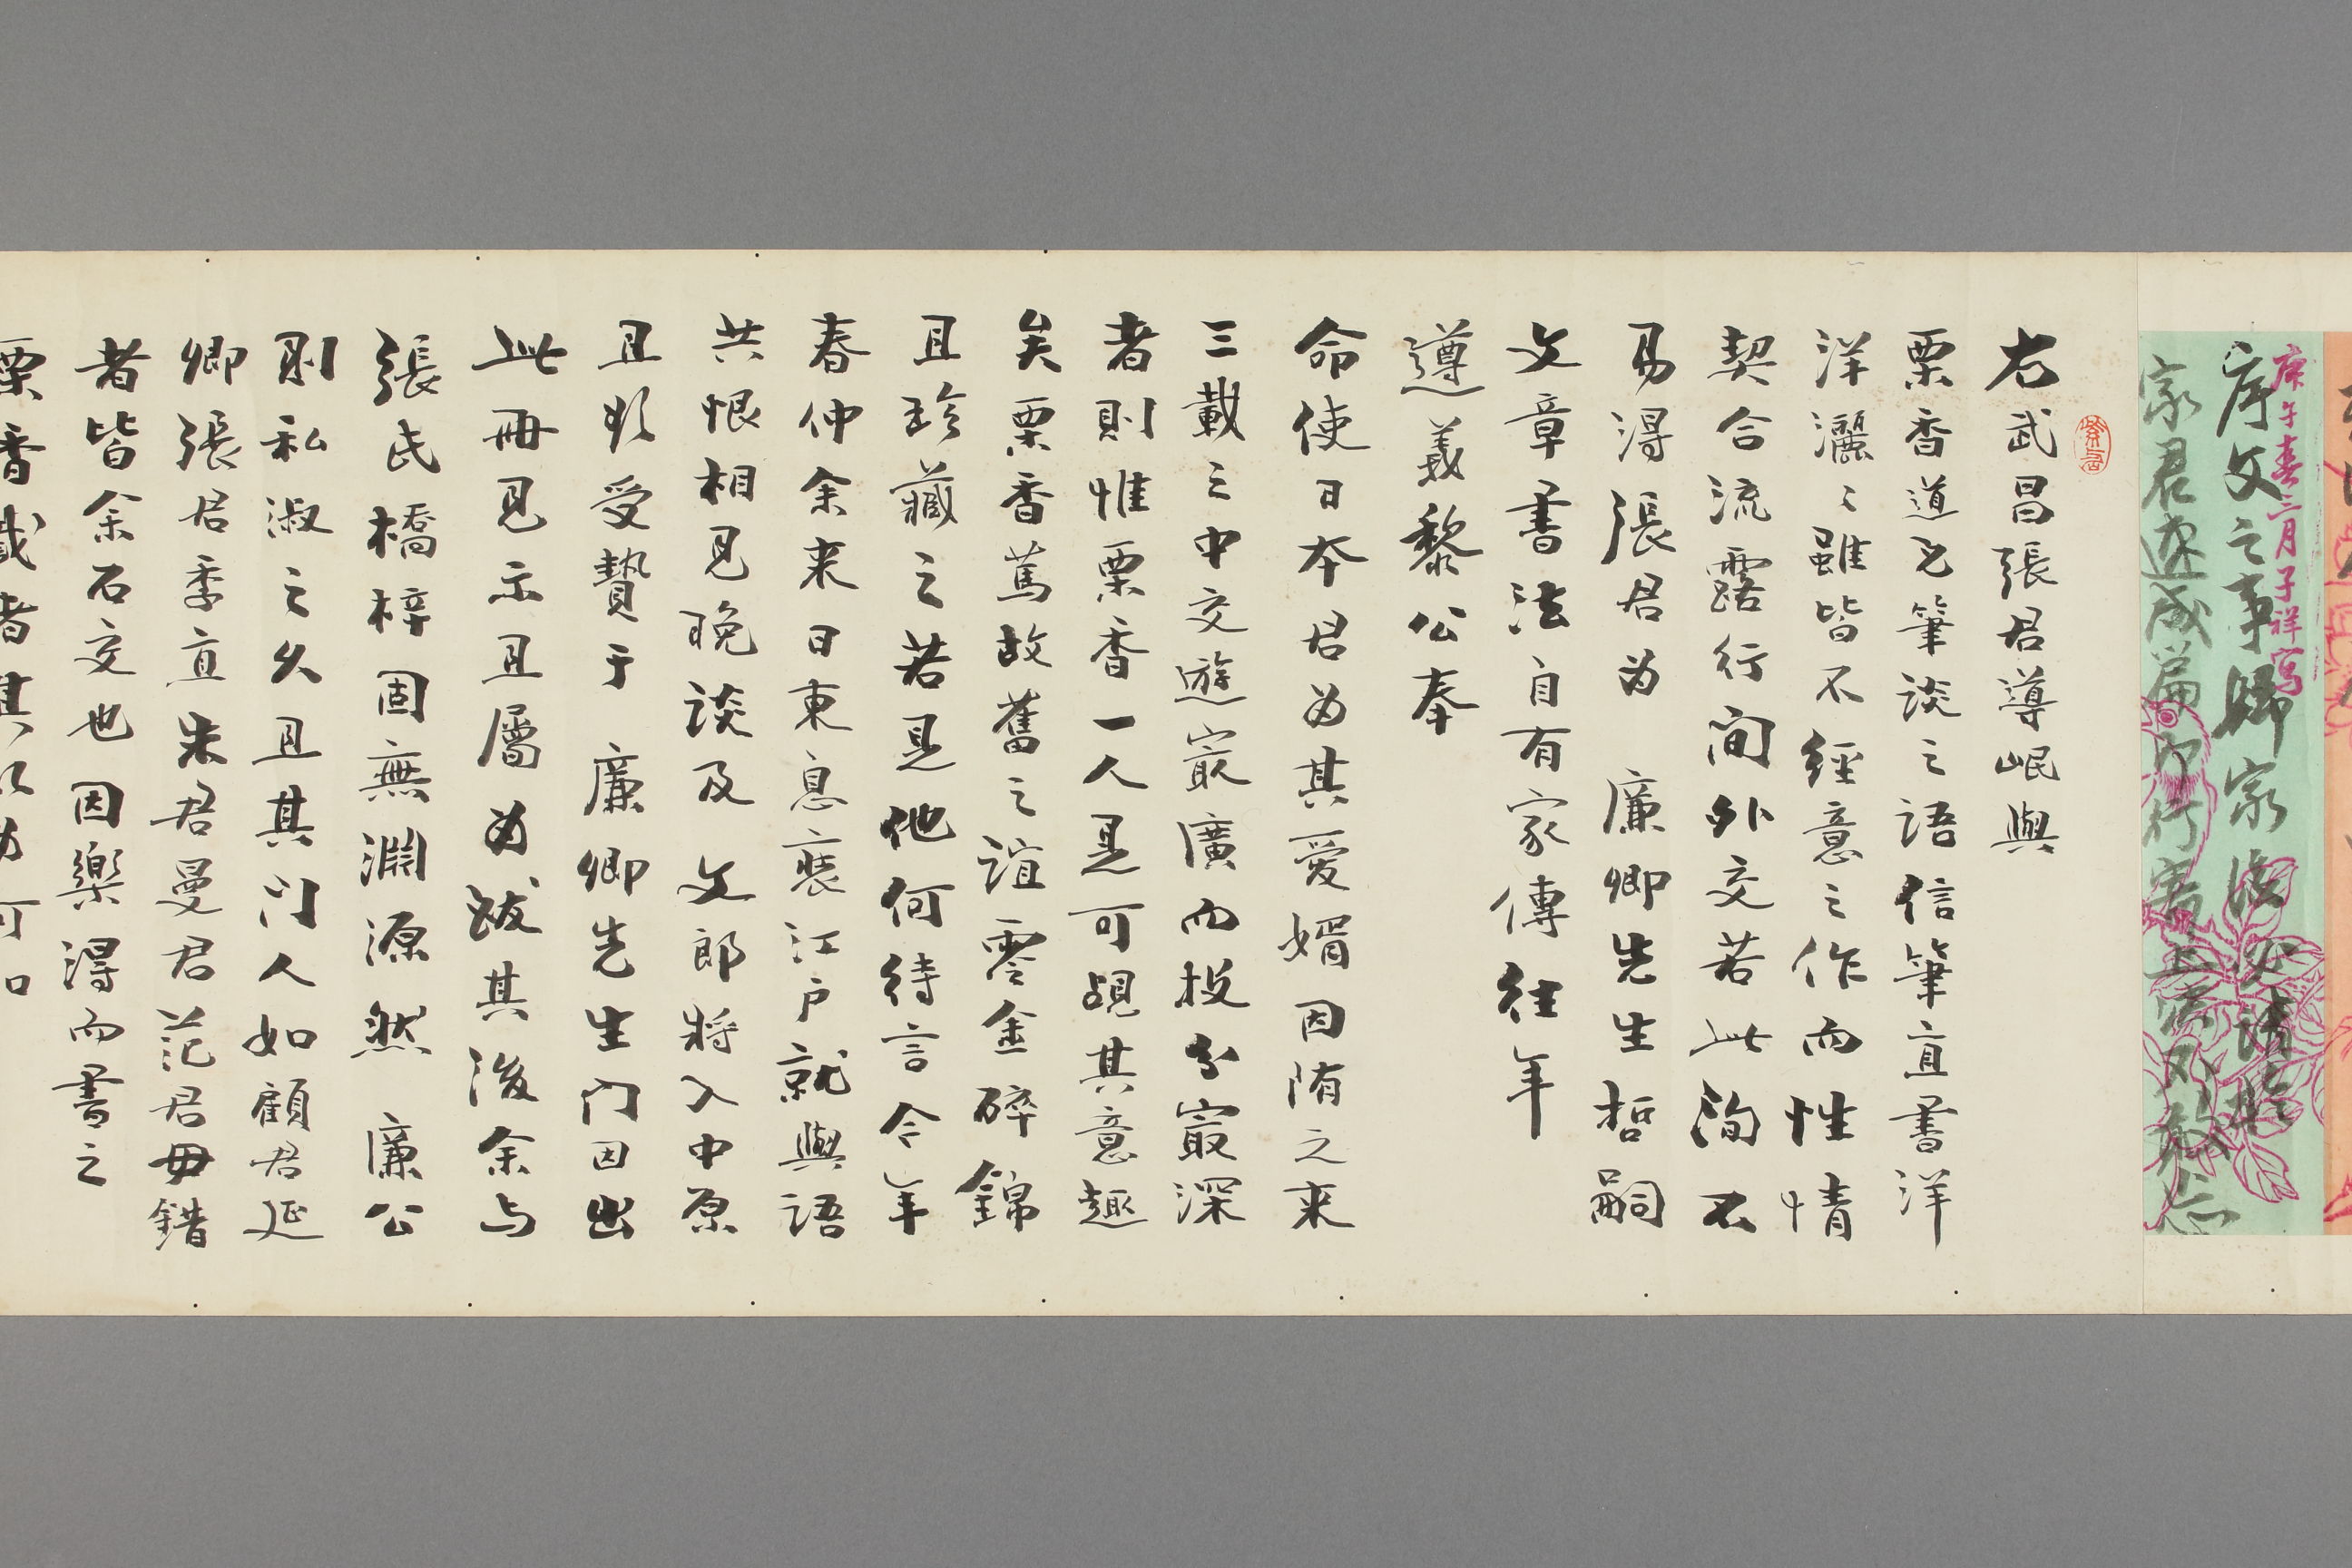 庚午春三月子祥寫
序文之事歸家後必請
家君速成篇即行寄上決不敢忘
右武昌張君導岷與
栗香道兄筆談之語信筆直書洋
洋灑〻雖皆不經意之作而性情
契合流露行間外交若此洵不
易得張君為 廉卿先生哲嗣
文章書法自有家傳往年
遵義黎公奉
命使日本君為其愛婿因隨之来
三載之中交遊最廣而投分最深
者則惟栗香一人是可覘其意趣
矣栗香篤故舊之誼零金碎錦
且珍藏之若是他何待言今年
春仲余来日東息裝江戶就與語
共恨相見晚談及 文郎将入中原
且欲受贄于 廉卿先生門因出
此冊見示且屬為跋其後余与
張氏橋梓固無淵源然 廉公
則私淑之久且其门人如顧君延
卿張君季直朱君曼君范君毋錯
者皆余石交也因樂得而書之
栗香 者其 可